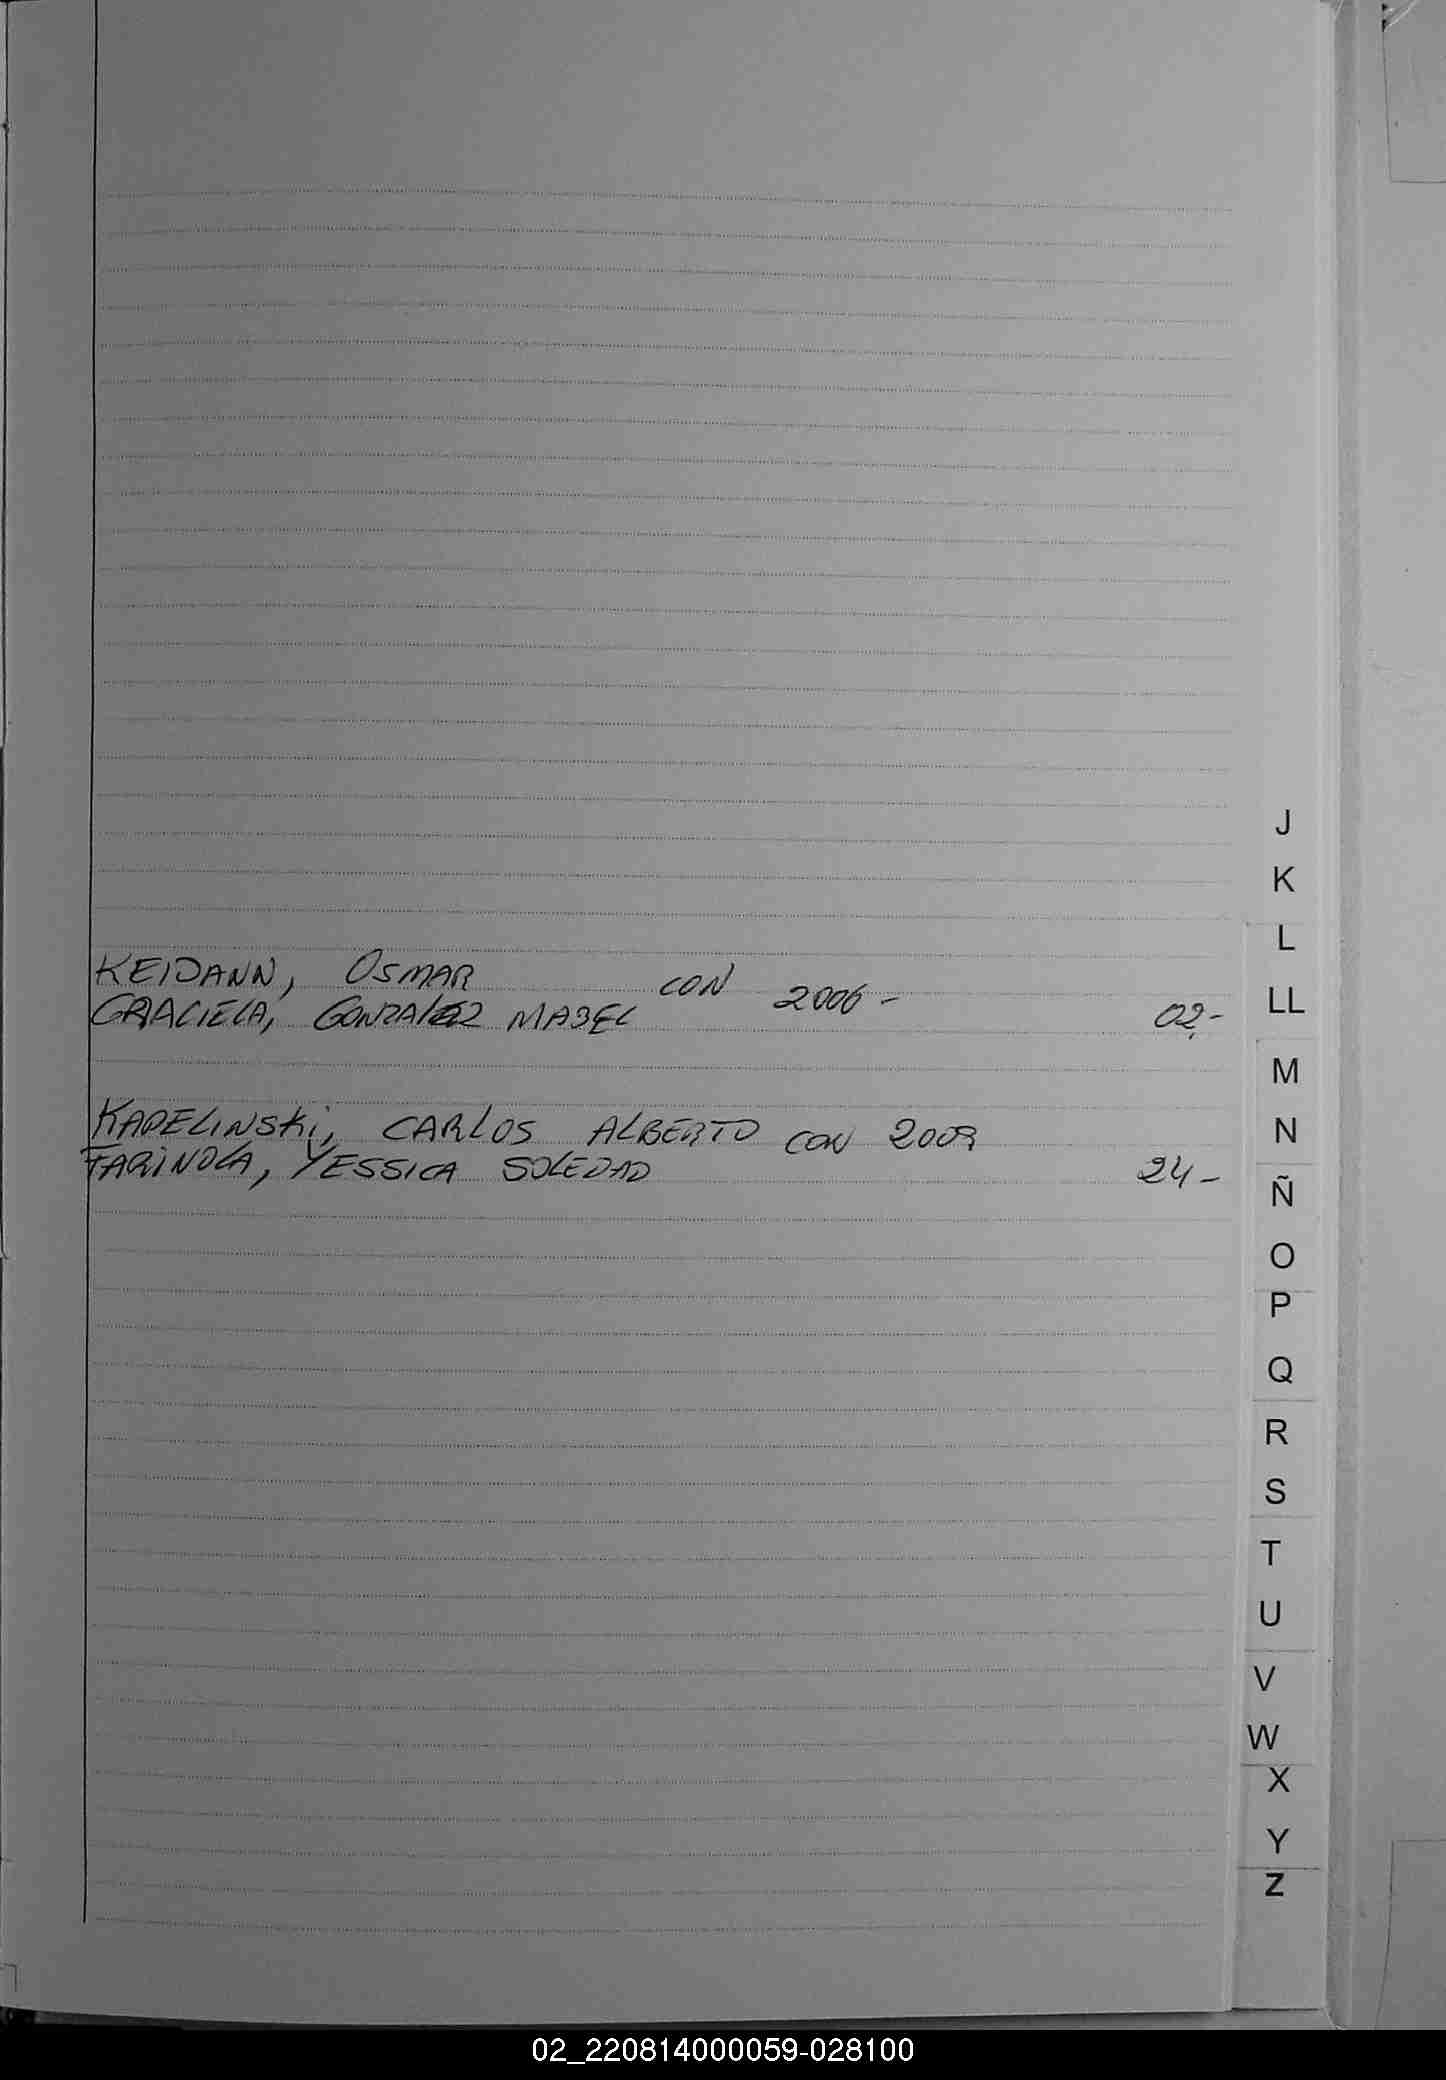 KEIDANN, OSMAR CON 2006 -
GRACIELA, GONZALEZ MABEL 02,-
KAPELINSKI, CARLOS ALBERTO CON 2009
FARINOLA, YESSICA SOLEDAD 24 -
J
K
L
LL
M
N
Ñ
O
P
Q
R
S
T
U
V
W
X
Y
Z
02_220814000059-028100